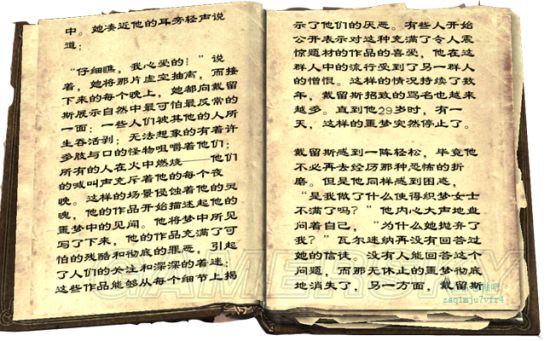 中。她凑近他的耳旁轻声说
道：
“仔细瞧，我心爱的！”说
着，她将那片虚空抽离，而接
下来的每个晚上，她都向戴留
斯展示自然中最可怕最反常的
一面：一些人们被其他的人所
生吞活剥；无法想象的有着许
多肢与口的怪物咀嚼着他们；
所有的人在火中燃烧——他们
的喊叫声充斥着他的每个夜
晚。这样的场景侵蚀着他的灵
魂，他的作品开始描述起他的
噩梦中的见闻。他将梦中所见
写了下来，他的作品充满了可
怕的残酷和彻底的罪恶，引起
了人们的关注和深深的着迷；
这些作品能够从每个细节上揭
示了他们的厌恶。有些人开始
公开表示对这种充满了令人震
惊题材的作品的喜爱，他在这
群人中的流行受到了另一群人
的憎恨。这样的情况持续了数
年，戴留斯招致的骂名也越来
越多。直到他29岁时，有一
天，这样的噩梦突然停止了。
戴留斯感到一阵轻松，毕竟他
不必再去经历那种恐怖的折
磨。但是他同样感到困惑，
“是我做了什么使得织梦女士
不满了吗？”他内心大声地盘
问着自己，“为什么她抛弃了
我？”瓦尔迷纳再没有回答过
她的信徒，没有人能回答这个
问题，而那无休止的噩梦彻底
地消失了，另一方面，戴留斯
GAMERSKY